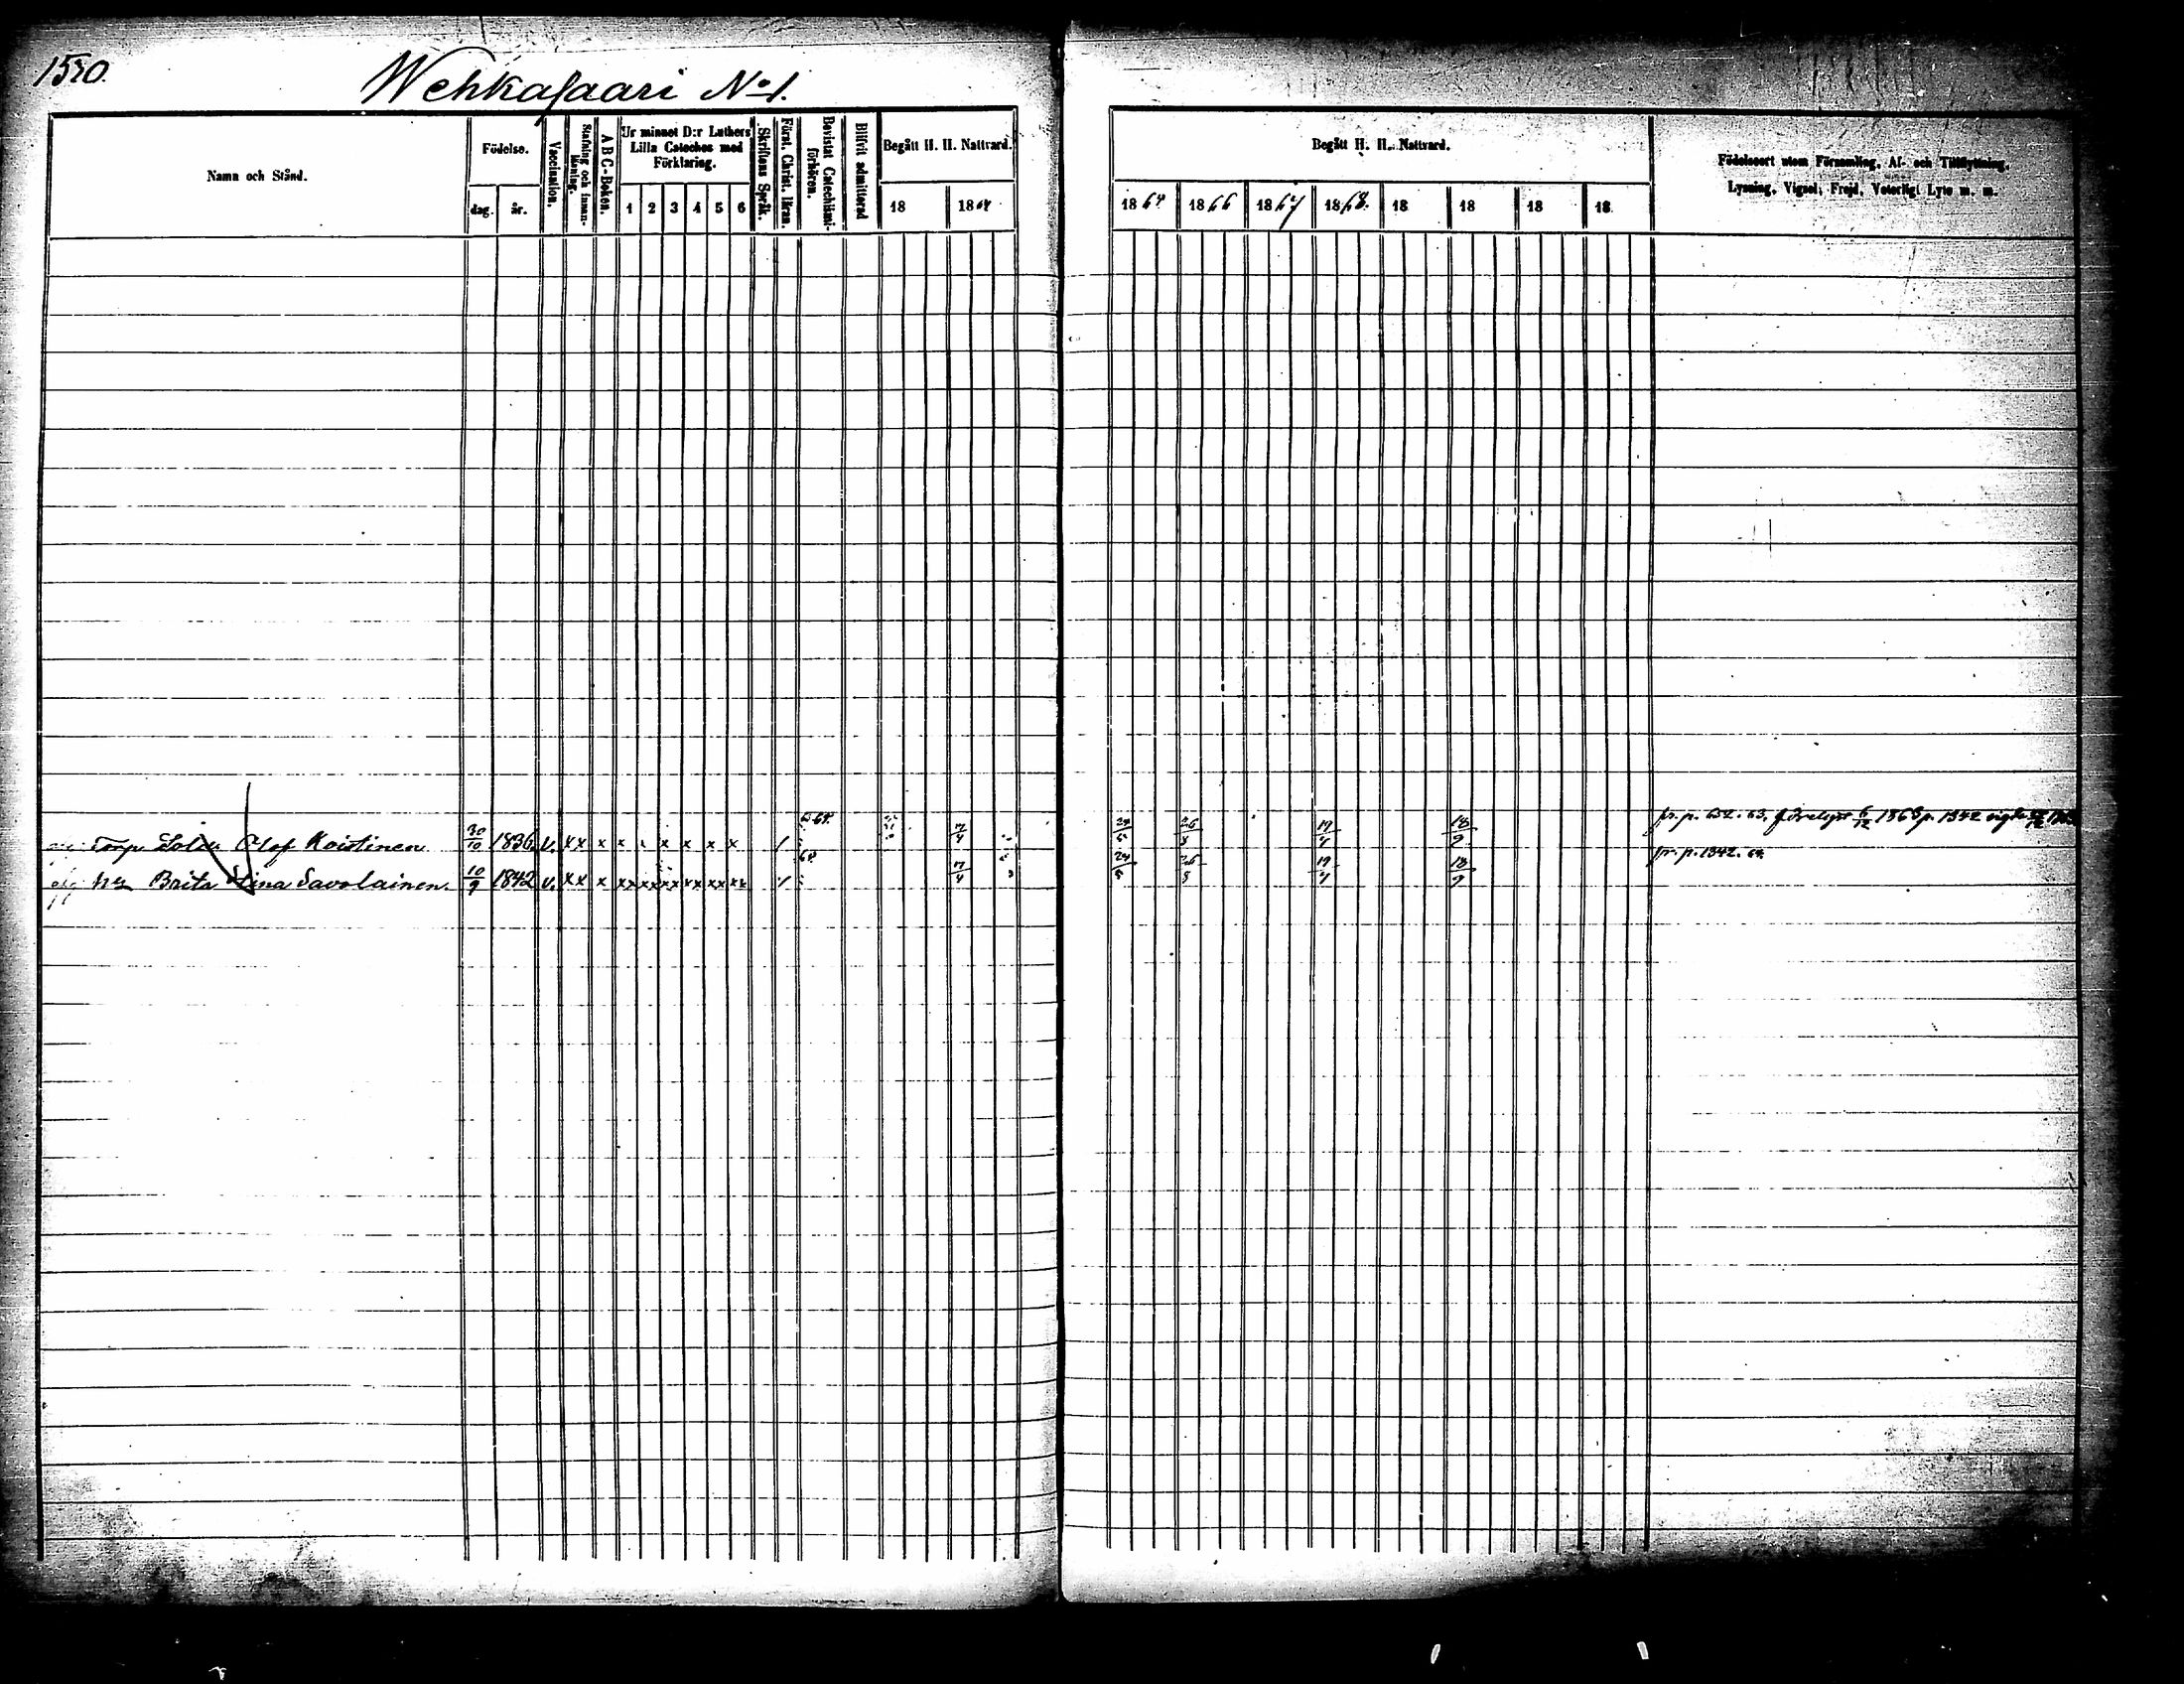 1550.
Wehkasaari No 1.
Namn och Stånd.
Födelse.
dag. år.
Vaccination.
Stafning och innan-läsning.
A B C-Boken.
Ur minnet D:r Luthers Lilla Cateches med Förklaring.
1 2 3 4 5 6
Skriftens Språk.
Först. Christ. läran.
Bevistat Catechismi-förhören.
Blifvit admitterad
Begått H. H. Nattvard.
18 1864
Begått H. H. Nattvard.
1864 1866 1867 1868. 18 18 18 18
Födelseort utom Församling, Af- och Tillflyttning,
Lysning, Vigsel, Frejd, Veterligt Lyte m. m.
Torp Olof Koistinen 30/10 1836. v. x x x x x x x x x 1 64. 24/5 26/8 19/4 18/9 fr. p. 652. 63. 6/12 1863 p. 1342
Brita Stina Savolainen. 10/9 1842 v. x x x xx xx xx xx xx xx 1 64. 24/5 26/8 19/4 18/9 fr. p. 1342. 64.